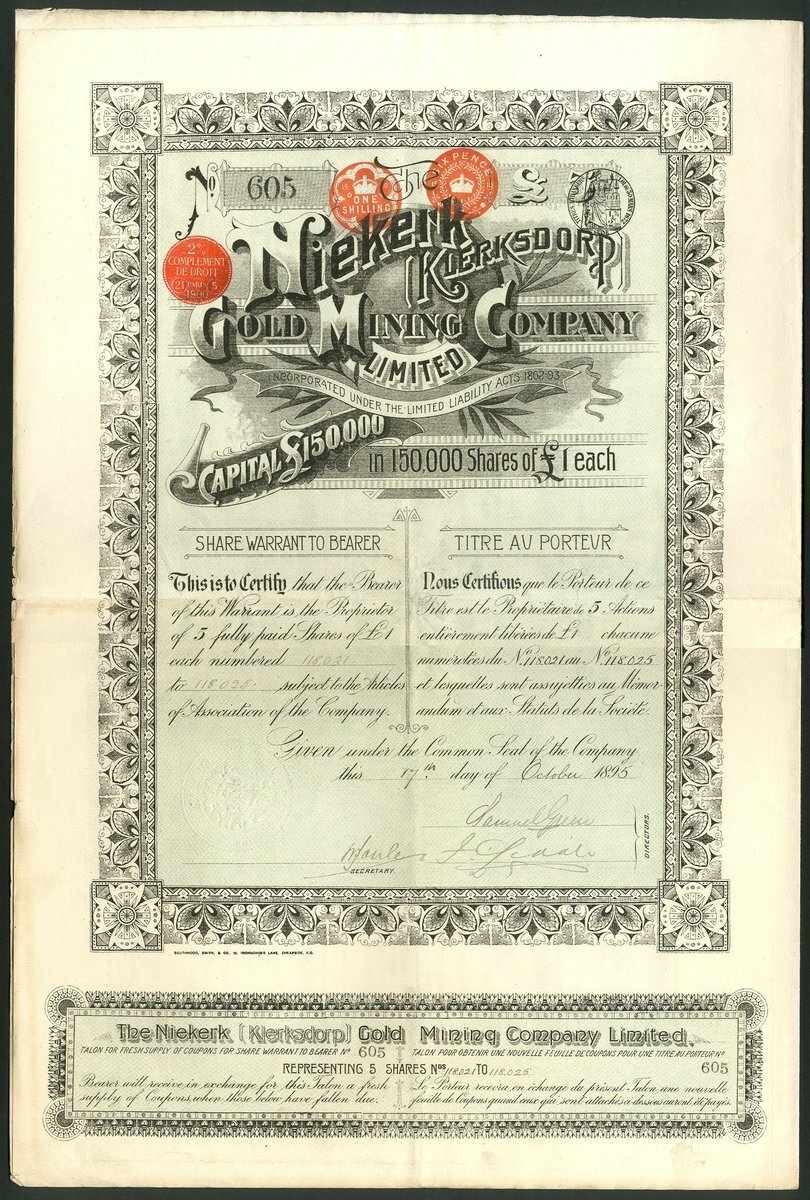 No 605
The
£ 5
ONE SHILLING
SIXPENCE
2% COMPLEMENT DE DROIT
PARIS 5
1900
Niekerk
(Klerksdorp)
Gold Mining Company
Limited
INCORPORATED UNDER THE LIMITED LIABILITY ACTS 1862-93.
CAPITAL £150,000
in 150,000 Shares of £1 each
SHARE WARRANT TO BEARER
This is to Certify that the Bearer
of this Warrant is the Proprietor
of 5 fully paid Shares of £1
each numbered 118021
to 118025 subject to the Articles
of Association of the Company.
TITRE AU PORTEUR
Nous Certifions que le Porteur de ce
Titre est le Propriétaire de 5 Actions
entièrement libérées de £1 chacune
numerotées du No 118021 au No 118025
et lesquelles sont assujetties au Memor
andum et aux Statuts de la Société.
Given under the Common Seal of the Company
this 17th day of October 1895
DIRECTORS.
SECRETARY.
SOUTHWOOD, SMITH, & CO., 10, IRONMONGER LANE, CHEAPSIDE, E.C.
The Niekerk (Klerksdorp) Gold Mining Company Limited.
TALON FOR FRESH SUPPLY OF COUPONS FOR SHARE WARRANT TO BEARER No 605
TALON POUR OBTENIR UNE NOUVELLE FEUILLE DE COUPONS POUR UNE TITRE AU PORTEUR No 605
REPRESENTING 5 SHARES Nos 118021 TO 118025
Bearer will receive in exchange for this Talon a fresh
supply of Coupons when those below have fallen due.
Le Porteur recevra en échange du présent Talon une nouvelle
feuille de Coupons quand ceux qui sont attachés a dessous auront été payés.